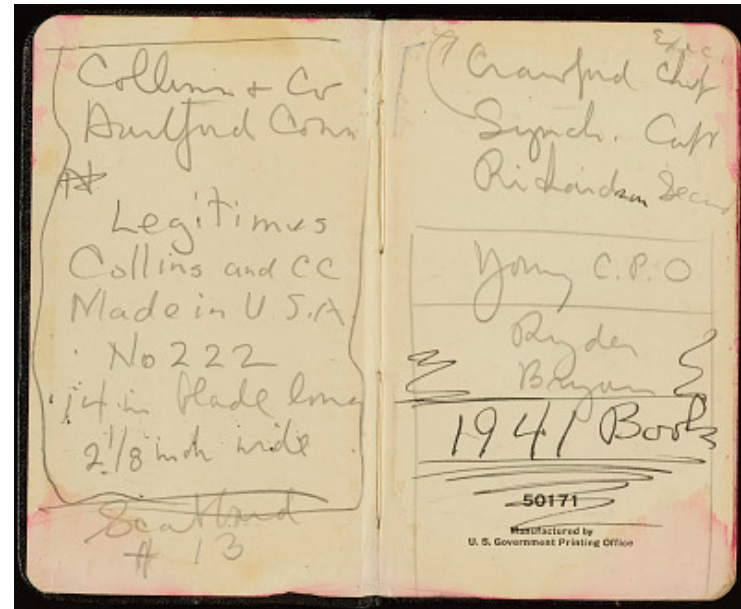 Collins + Co
Hartford Conn
Legitimus
Collins and CC
Made in U.S.A.
No 222
14 in blade long
2 1/8 inch wide
# 13
Exec.
Crawford Chf
Synch. Capt
Richardson Secand
Young C.P.O
Ryder
Bryan
1941 Book
50171
Manufactured by
U. S. Government Printing Office